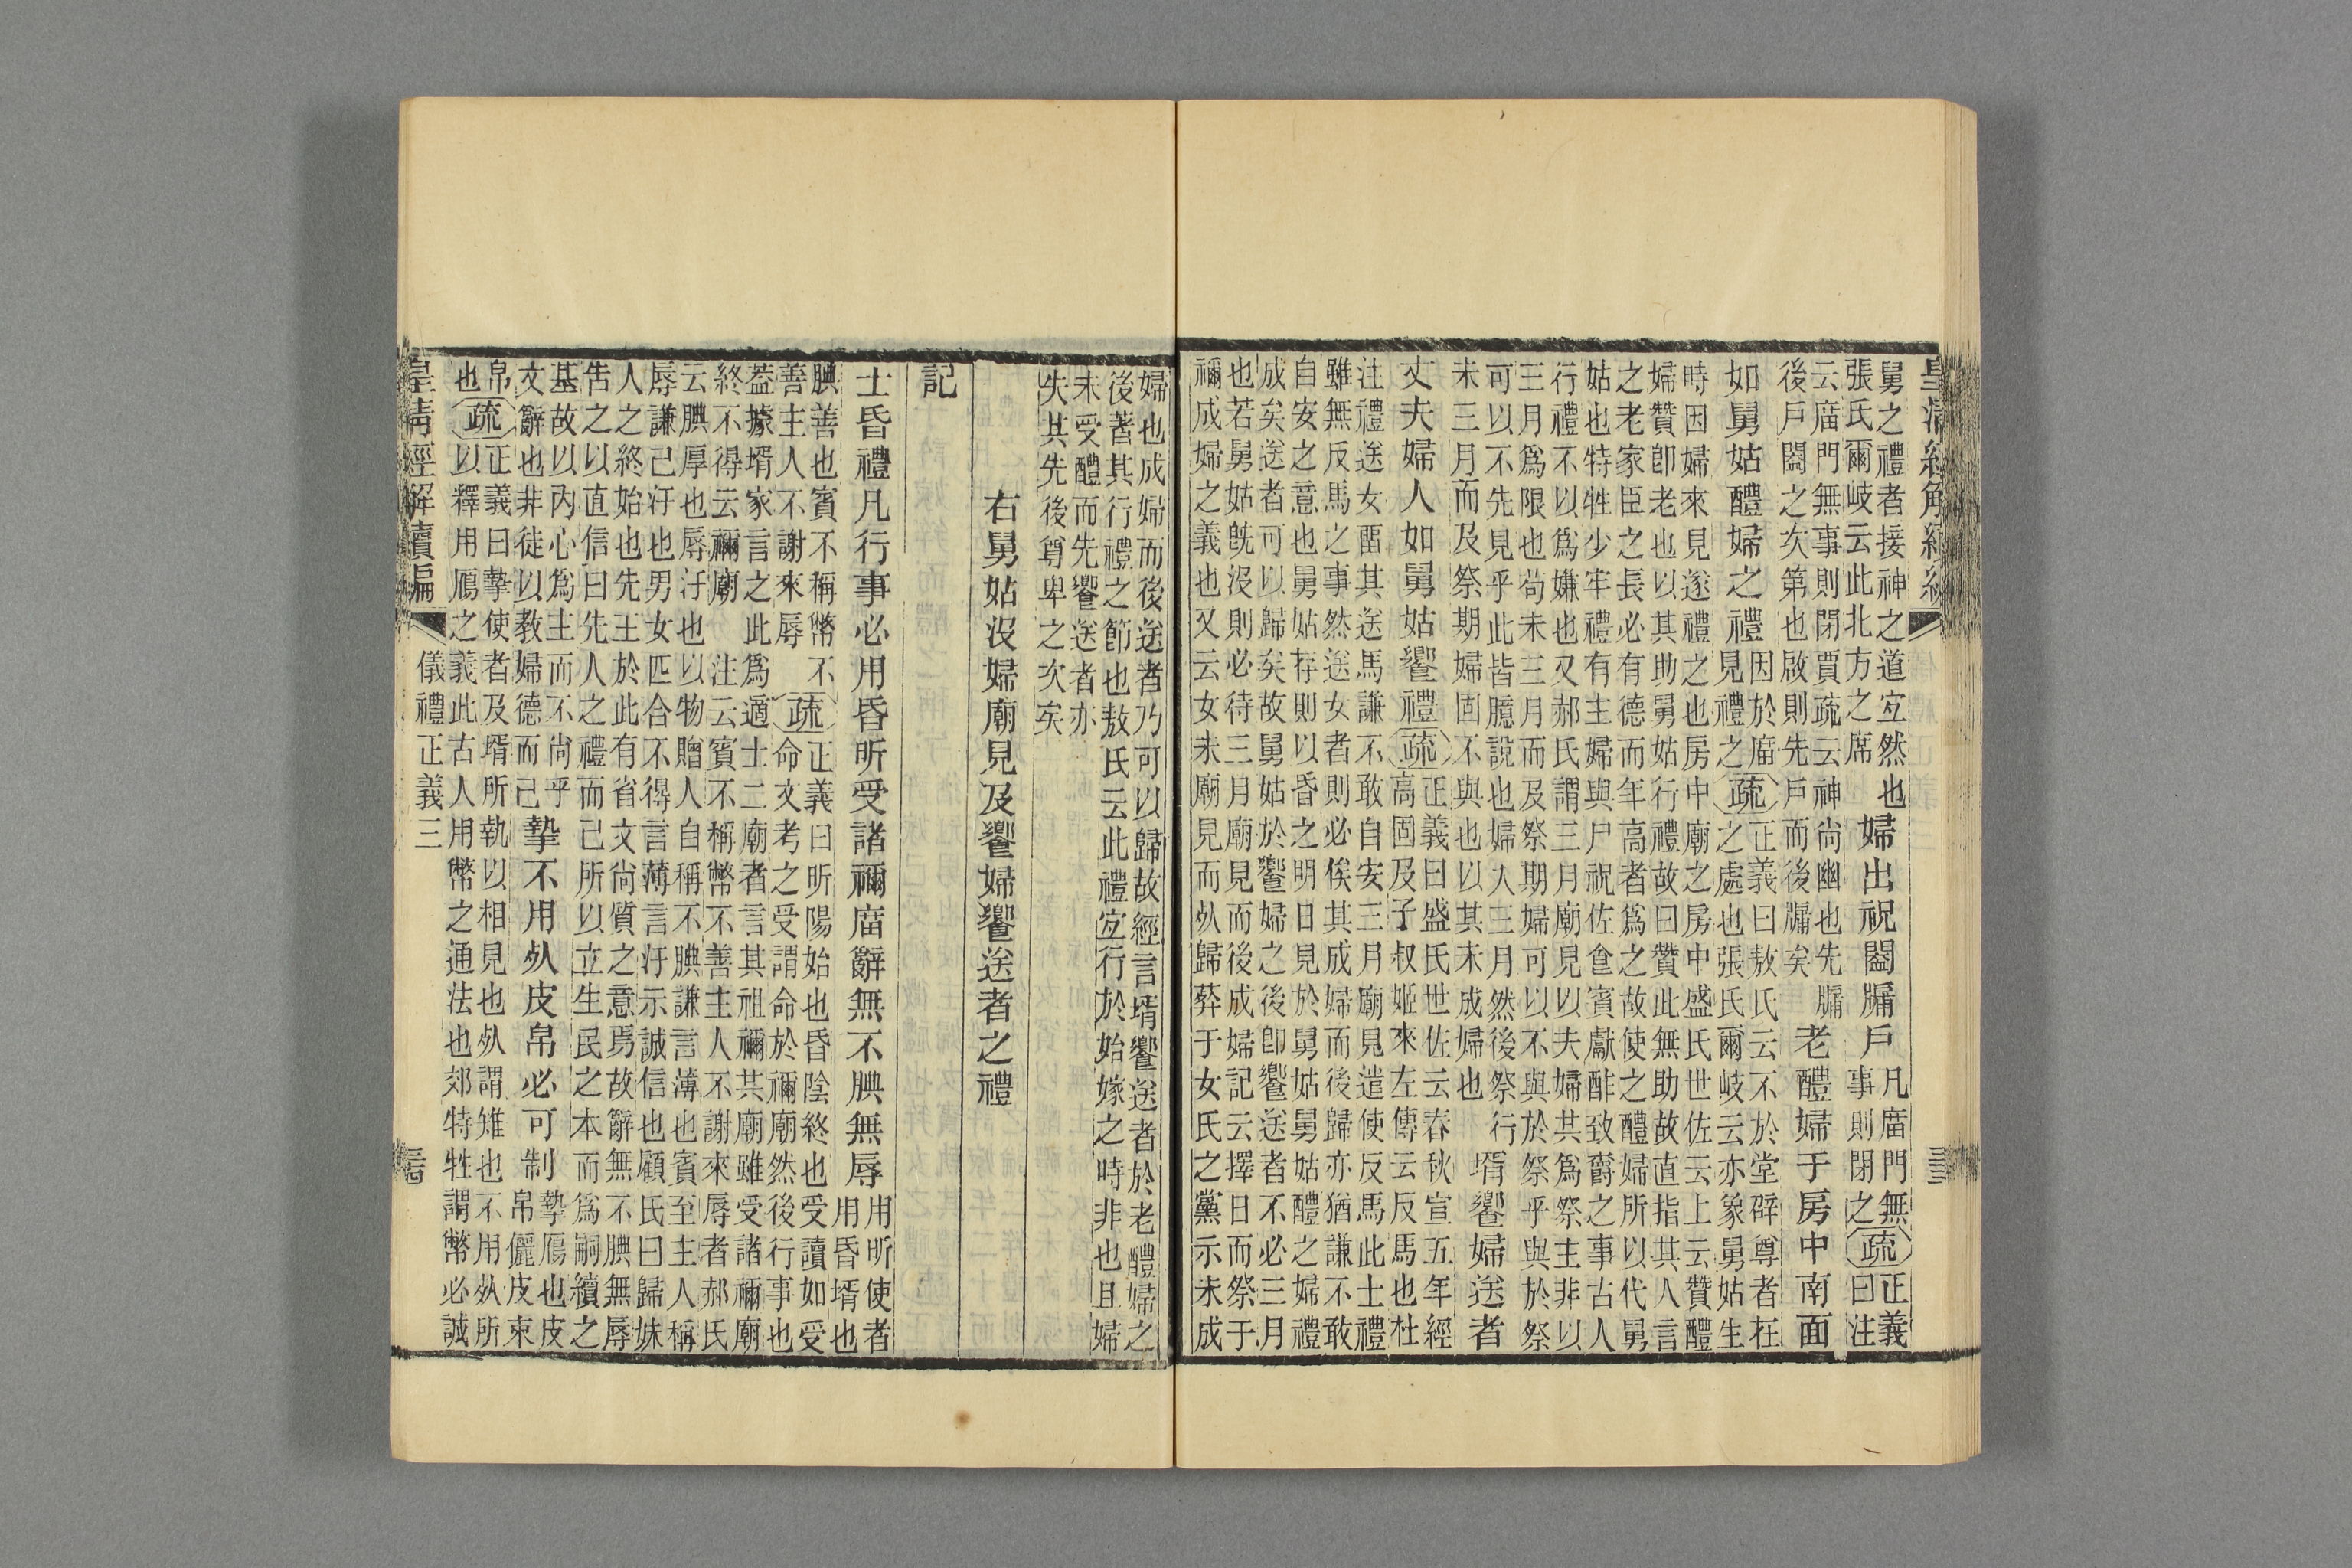 皇清經解續編
舅之禮者接神之道宐然也
張氏爾岐云此北方之席
婦出祝闔牖戶
凡廟門無
事則閉之
疏
正義
曰注
云廟門無事則閉賈疏云神尚幽也先牖
後戶闔之次第也啟則先戶而後牖矣
老醴婦于房中南面
如舅姑醴婦之禮
因於廟
見禮之
疏
正義曰敖氏云不於堂辟尊者在
之處也張氏爾岐云亦象舅姑生
時因婦來見遂禮之也房中廟之房中盛氏世佐云上云贊醴
婦贊卽老也以其助舅姑行禮故曰贊此無助故直指其人言
之老家臣之長必有德而年高者爲之故使之醴婦所以代舅
姑也特牲少牢禮有主婦與尸祝佐食賓獻酢致爵之事古人
行禮不以爲嫌也又郝氏謂三月廟見以夫婦共爲祭主非以
三月爲限也尚未三月而及祭期婦可以不與於祭乎與於祭
可以不先見乎此皆臆說也婦人三月然後祭行
未三月而及祭期婦固不與也以其未成婦也
壻饗婦送者
丈夫婦人如舅姑饗禮
疏
正義曰盛氏世佐云春秋宣五年經
高固及子叔姬來左傳云反馬也杜
注禮送女畱其送馬謙不敢自安三月廟見遣使反馬此士禮
雖無反馬之事然送女者則必俟其成婦而後歸亦猶謙不敢
自安之意也舅姑存則以昏之明日見於舅姑舅姑醴之婦禮
成矣送者可以歸矣故舅姑於饗婦之後卽饗送者不必三月
也若舅姑旣沒則必待三月廟見而後成婦記云擇日而祭于
禰成婦之義也又云女未廟見而死歸葬于女氏之黨示未成
婦也成婦而後送者乃可以歸故經言壻饗送者於老醴婦之
後著其行禮之節也敖氏云此禮宐行於始嫁之時非也且婦
未受醴而先饗送者亦
失其先後尊卑之次矣
右舅姑沒婦廟見及饗婦饗送者之禮
記
士昏禮凡行事必用昏昕受諸禰廟辭無不腆無辱
用昕使者
用昏壻也
腆善也賓不稱幣不
善主人不謝來辱
疏
正義曰昕陽始也昏陰終也受讀如受
命文考之受謂命於禰廟然後行事也
葢據壻家言之此爲適士二廟者言其祖禰共廟雖受諸禰廟
終不得云禰廟 注云賓不稱幣不善主人不謝來辱者郝氏
云腆厚也辱汙也以物贈人自稱不腆謙言薄也賓至主人稱
辱謙己汙也男女匹合不得言薄言汙示誠信也顧氏曰歸妹
人之終始也先王於此有省文尚質之意焉故辭無不腆無辱
告之以直信曰先人之禮而己所以立生民之本而爲嗣續之
基故以內心爲主而不尚乎
文辭也非徒以教婦德而己
摯不用死皮帛必可制
摯鴈也皮
帛儷皮束
帛
也
疏
正義曰摯使者及壻所執以相見也死謂雉也不用死所
以釋用鴈之義此古人用幣之通法也郊特牲謂幣必誠
皇清經解續編
儀禮正義三